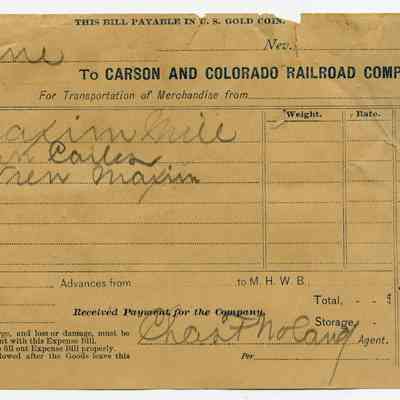 THIS BILL PAYABLE IN U. S. GOLD COIN.
Nev.
To CARSON AND COLORADO RAILROAD COMP
For Transportation of Merchandise from
Weight. Rate.
Maxim
Maxim
Advances from to M. H. W. B.
Total, - $
Received Payment for the Company,
Storage -
rge, and loss or damage, must be
nt with this Expense Bill.
fill out Expense Bill properly.
lowed after the Goods leave this
Chas F Nolan
Agent.
Per